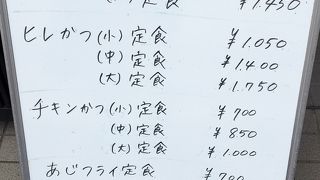 定食 ¥1.450
ヒレかつ(小)定食 ¥1.050
(中)定食 ¥1.400
(大)定食 ¥1.750
チキンかつ(小)定食 ¥700
(中)定食 ¥850
(大)定食 ¥1.000
あじフライ定食 ¥700